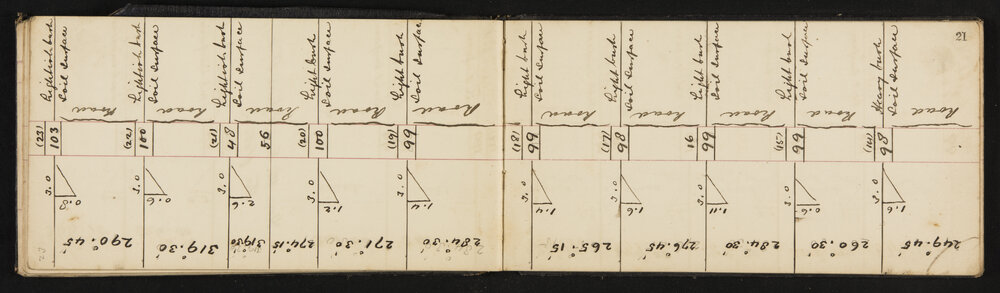 21
(23) 103
Lightish bush
Soil surface
Road
3.0
0.3
290°.45'
(22) 100
Lightish bush
Soil surface
Road
3.0
0.6
319°.30'
(21) 48
Lightish bush
Soil surface
Road
3.0
2.6
319°30'
56
274°.15'
(20) 100
Light bush
Soil surface
Road
3.0
1.2
271°.30'
(19) 99
Light bush
Soil surface
Road
3.0
1.4
284°.30'
(18) 99
Light bush
Soil surface
Road
3.0
1.4
265°.15'
(17) 98
Light bush
Soil surface
Road
3.0
1.6
276°.45'
16 99
Light bush
Soil surface
Road
3.0
1.11
284°.30'
(15) 99
Lightish bush
Soil surface
Road
3.0
0.6
260°.30'
98
Heavy bush
Soil surface
Road
3.0
1.6
249°.45'
23